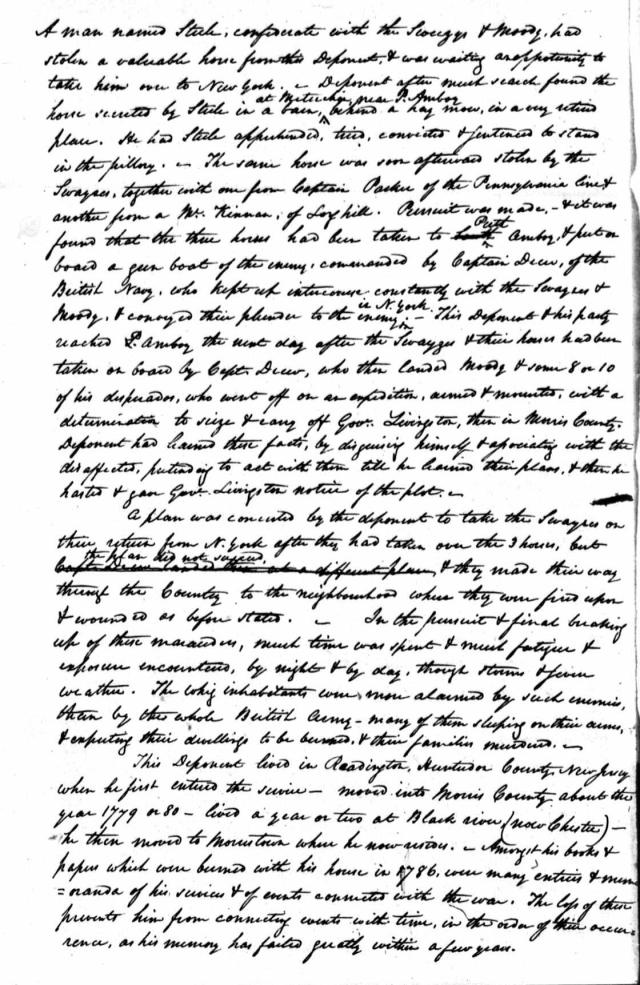 A man named Steele, confederate with the Swayzys & Moody, had
stolen a valuable horse from this Deponent, & was waiting an opportunity to
take him over to New York. – Deponent after much search found the
at Metuchin near P. Amboy
horse secreted by Steele in a barn, behind a hay mow, in a very retired
place. He had Steele apprehended, tried, convicted & sentenced to stand
in the pillory. – The same horse was soon afterward stolen by the
Swayzes, together with one from Captain Parker of the Pennsylvania line &
another from a Mr. Kinnan, of Loghill. Pursuit was made, – & it was
Perth
found that the three horses had been taken to Amboy, & put on
board a gun boat of the enemy, commanded by Captain Decew, of the
British Navy, who kept up intercourse constantly with the Swayzes &
in N. York.
Moody, & conveyed their plunder to the enemy. – This Deponent & his party
reached P. Amboy the next day after the Swayzes & their horses had been
taken on board by Capt. Decew, who then landed Moody & some 8 or 10
of his desperados, who went off on an expedition, armed & mounted, with a
determination to seize & carry off Gov. Livingston, then in Morris County.
Deponent had learned these facts, by disguising himself & associating with the
disaffected, pretending to act with them till he learned their plans, & then he
hasted & gave Gov. Livingston notice of the plot. –
A plan was concerted by the deponent to take the Swayzes on
their return from N. York after they had taken over the 3 horses, but
the plan did not succeed,
Capt Decew landed them at a different place, & they made their way
through the Country to the neighbourhood where they were fired upon
& wounded as before stated. – In the pursuit & final breaking
up of these marauders, much time was spent & much fatigue &
exposure encountered, by night & by day, though storms & severe
weather. The whig inhabitants were more alarmed by such enemies,
than by the whole British Army – many of them sleeping on their arms,
& expecting their dwellings to be burned, & their families murdered. –
This Deponent lived in Readington, Hunterdon County, New Jersey
when he first entered the service – moved into Morris County about the
year 1779 or 80 – lived a year or two at Black river, (now Chester) –
he then moved to Morristown where he now resides. – Amongst his books &
papers which were burned with his house in 1786, were many entries & mem
=oranda of his services & of events connected with the war. The loss of these
prevents him from connecting events with time, in the order of their occur=
rence, as his memory has failed greatly within a few years.